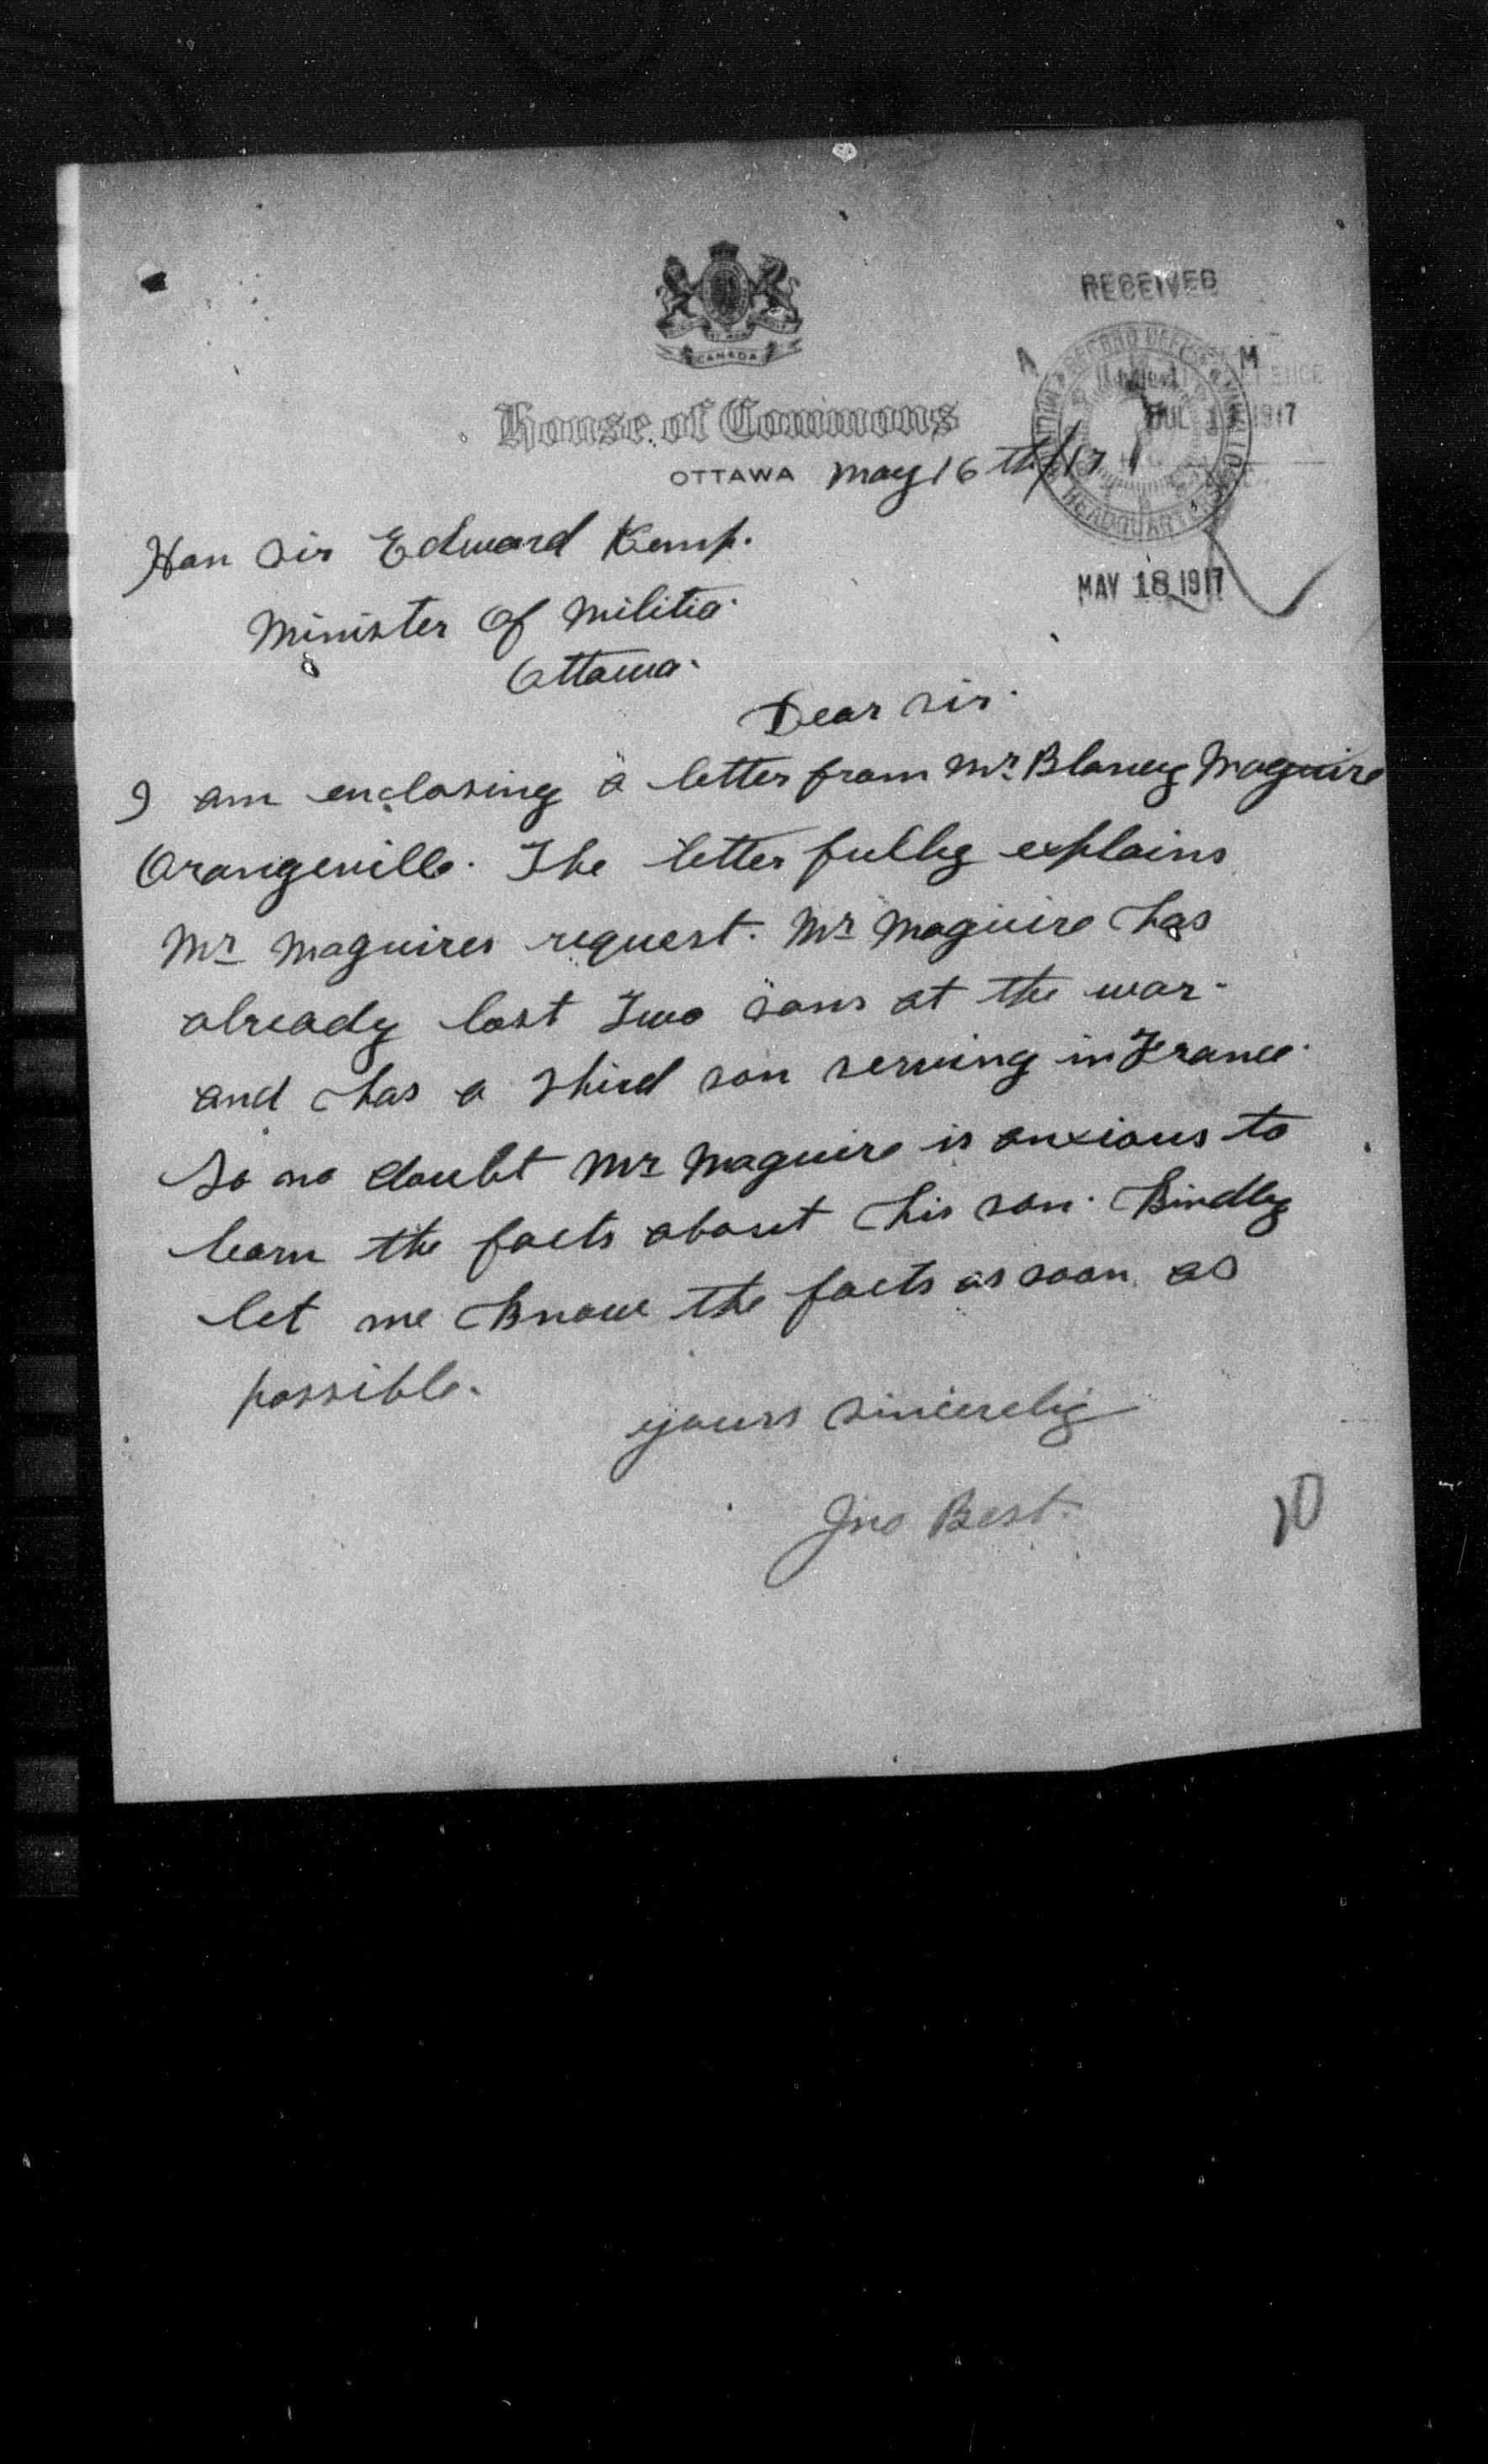 CANADA
RECEIVED
House of Commons
JUL 1917
OTTAWA May 16th/17
HEADQUARTERS
MAY 18 1917
Hon Sir Edward Kemp.
Minister of Militia.
Ottawa.
Dear Sir.
I am enclosing a letter from Mr Blaney Maguire
Orangeville. The letter fully explains
Mr Maguires request. Mr Maguire has
already lost Two sons at the war.
and has a third son serving in France.
So no doubt Mr Maguire is anxious to
learn the facts about his son. Kindly
let me know the facts as soon as
possible.
yours sincerely
Jno Best.
10